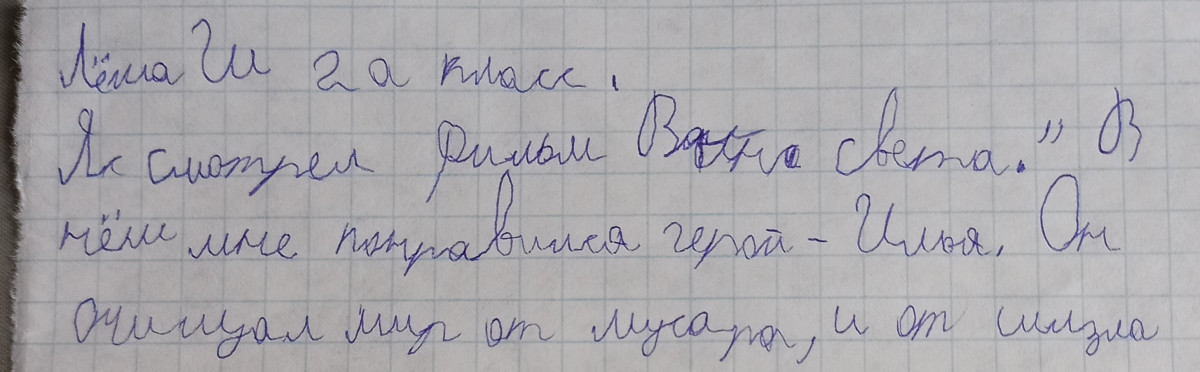 Лёша Ш 2 а класс.
Я смотрел фильм света." В
нём мне понравился герой - Илья. Он
очищал мир от мусара, и от